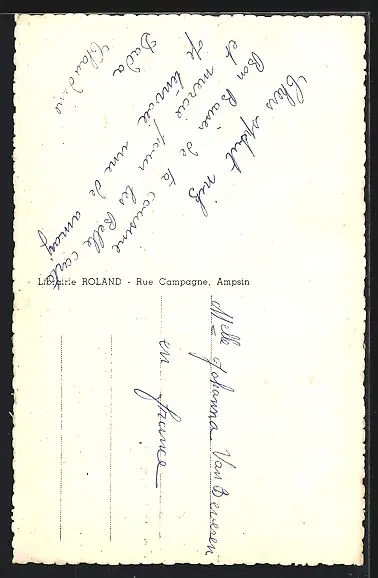 Chers petit nièce
Bon Baiser de ta cousine
et mercie pour les Belle carte
Je t'envoie une de amay
Dada
Claudine
Librairie ROLAND - Rue Campagne, Ampsin
Melle Johanna Van Beveren
en france